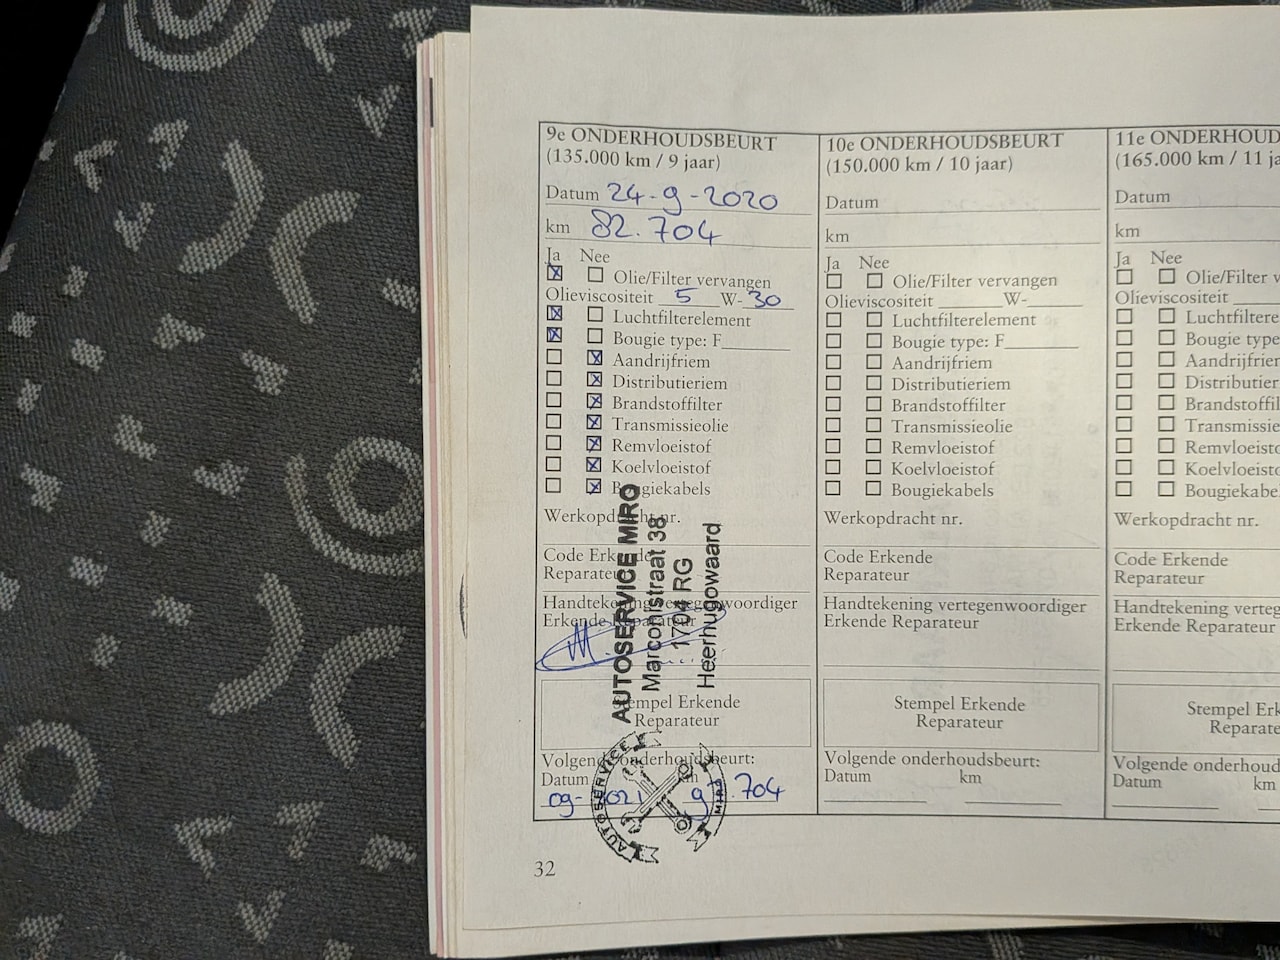 9e ONDERHOUDSBEURT
(135.000 km / 9 jaar)
Datum 24-9-2020
km 82.704
Ja Nee
Olie/Filter vervangen
Olieviscositeit 5 W-30
Luchtfilterelement
Bougie type: F
Aandrijfriem
Distributieriem
Brandstoffilter
Transmissieolie
Remvloeistof
Koelvloeistof
Bougiekabels
Werkopdracht nr.
Code Erkende
Reparateur
Handtekening vertegenwoordiger
Erkende Reparateur
Stempel Erkende
Reparateur
Volgende onderhoudsbeurt:
Datum km
09- .704
AUTOSERVICE MIRO
Marconistraat 38
1704 RG
Heerhugowaard
AUTOSERVICE
MIRO
10e ONDERHOUDSBEURT
(150.000 km / 10 jaar)
Datum
km
Ja Nee
Olie/Filter vervangen
Olieviscositeit W-
Luchtfilterelement
Bougie type: F
Aandrijfriem
Distributieriem
Brandstoffilter
Transmissieolie
Remvloeistof
Koelvloeistof
Bougiekabels
Werkopdracht nr.
Code Erkende
Reparateur
Handtekening vertegenwoordiger
Erkende Reparateur
Stempel Erkende
Reparateur
Volgende onderhoudsbeurt:
Datum km
11e ONDERHOUD
(165.000 km / 11 ja
Datum
km
Ja Nee
Olie/Filter v
Olieviscositeit
Luchtfiltere
Bougie type
Aandrijfrier
Distributier
Brandstoffil
Transmissie
Remvloeisto
Koelvloeisto
Bougiekabe
Werkopdracht nr.
Code Erkende
Reparateur
Handtekening verteg
Erkende Reparateur
Stempel Erk
Reparate
Volgende onderhoud
Datum km
32